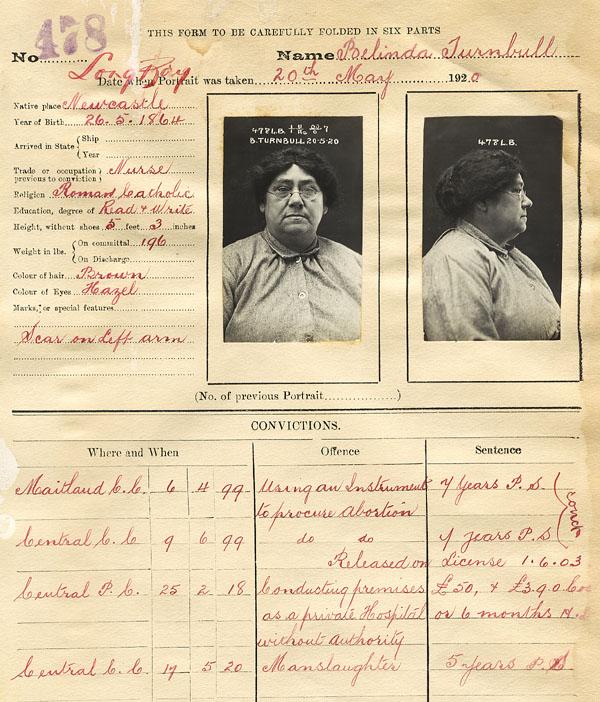 THIS FORM TO BE CAREFULLY FOLDED IN SIX PARTS
No. 478 Name Belinda Turnbull
Long Bay
Date when Portrait was taken 20th May 1920
Native place Newcastle
Year of Birth 26.5.1864
Arrived in State { Ship
Year
Trade or occupation previous to conviction } Nurse
Religion Roman Catholic
Education, degree of Read & Write
Height, without shoes 5 feet 3 inches
Weight in lbs. { On committal 196
On Discharge
Colour of hair Brown
Colour of Eyes Hazel
Marks, or special features
Scar on Left arm
478 L.B.
B. TURNBULL 20-5-20
478 L.B.
(No. of previous Portrait )
CONVICTIONS.
Where and When Offence Sentence
Maitland C.C. 6 4 99 Using an Instrument 7 Years P.S
to procure abortion
conct
Central C.C 9 6 99 do do 7 years P.S
Released on License 1.6.03
Central P.C. 25 2 18 Conducting premises £50, & £3.9.0
as a private Hospital or 6 months
without authority
Central C.C. 17 5 20 Manslaughter 5 years P.S